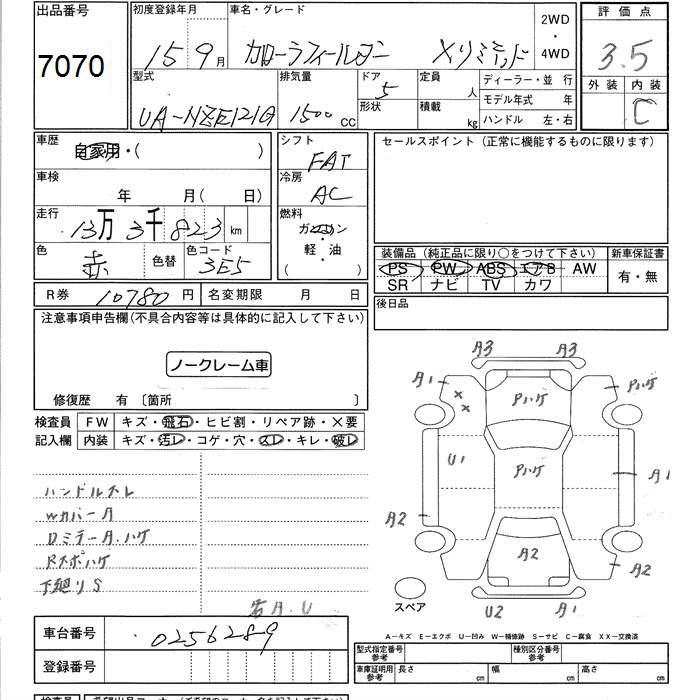 出品番号 7070
初度登録年月 15 9月
車名・グレード カローラフィールダー Xリミテッド
2WD・4WD
評価点 3.5
外装 内装 C
型式 UA-NZE121G
排気量 1500 CC
ドア 5 形状
定員 人 積載 kg
ディーラー・並行
モデル年式 年
ハンドル 左・右
車歴 自家用・( )
シフト FAT
セールスポイント(正常に機能するものに限ります)
車検 年 月(日)
冷房 AC
走行 13万3千823km
燃料 ガソリン・軽・油( )
色 赤 色替 色コード 3E5
装備品(純正品に限り○をつけて下さい)
新車保証書
PS PW ABS エアB AW
SR ナビ TV カワ
有・無
R券 10780円 名変期限 月 日
後日品
注意事項申告欄(不具合内容等は具体的に記入して下さい)
ノークレーム車
修復歴 有〔箇所 〕
検査員 FW キズ・飛石・ヒビ割・リペア跡・×要
記入欄 内装 キズ・汚レ・コゲ・穴・スレ・キレ・破レ
ハンドルスレ
Wカバー A
Dミラー A.ハゲ
Rスポハゲ
下廻り S
A.U
A3 A3
A1 Pハゲ Pハゲ
U1 Pハゲ A1
A2 A2 A2
U2 A1
スペア
A-キズ E-エクボ U-凹み W-補修跡 S-サビ C-腐食 XX-交換済
車台番号 0256289
型式指定番号 参考 種別区分番号 参考
登録番号
車庫証明用 参考 長さ cm 幅 cm 高さ cm